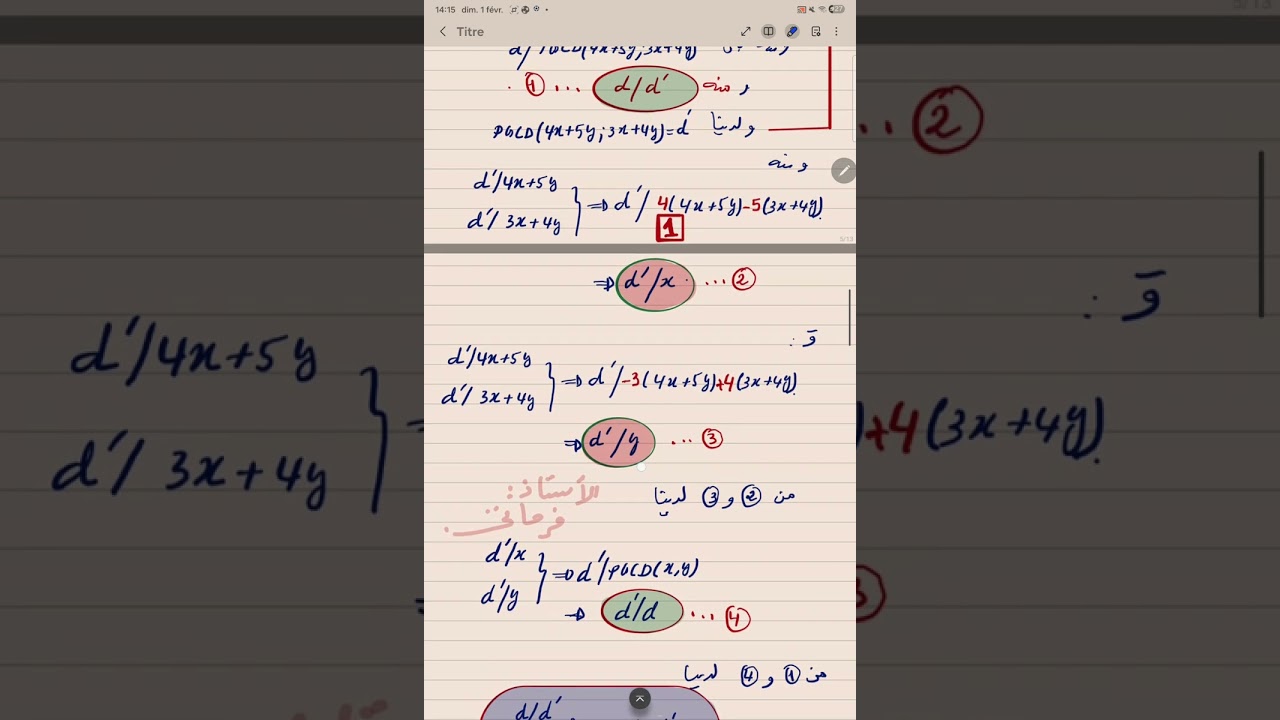 14:15 dim. 1 févr.
Titre
d/PGCD(4x+5y;3x+4y)
ومنه d/d' ... ①
ولدينا PGCD(4x+5y;3x+4y)=d'
ومنه
d'/4x+5y
d'/3x+4y } ⇒ d'/4(4x+5y)-5(3x+4y).
1
5/13
⇒ d'/x ... ②
و :
d'/4x+5y
d'/3x+4y } ⇒ d'/-3(4x+5y)+4(3x+4y).
⇒ d'/y ... ③
من ② و ③ لدينا
الأستاذ:
d'/x
d'/y } ⇒ d'/PGCD(x,y)
⇒ d'/d ... ④
من ① و ④ لدينا
d/d'